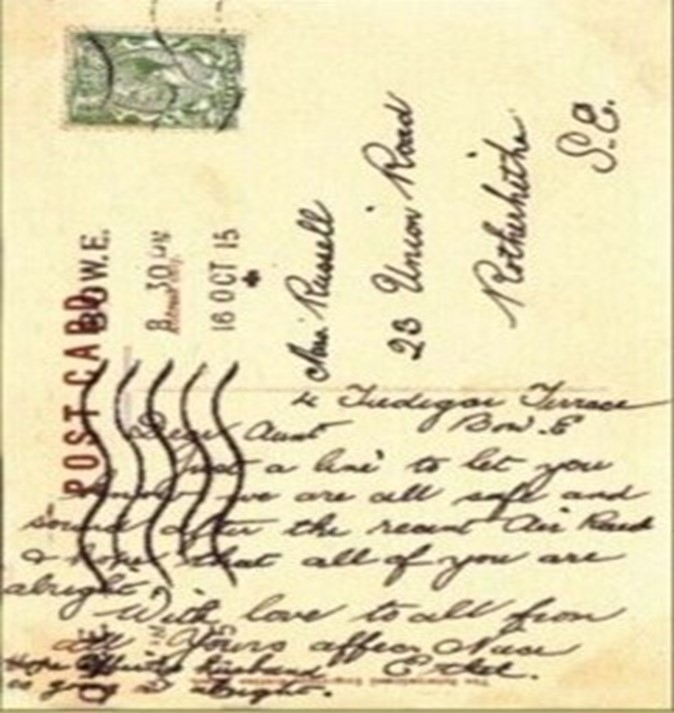 POST CARD
BOW. E.
8 30
16 OCT 15
Russell
23 Union Road
Rotherhithe
S.E.
4 Tredegar Terrace
Bow. E
Dear Aunt
Just a line to let you
know we are all safe and
sound after the recent Air Raid
& hope that all of you are
alright.
With love to all from
all Yours affec. Niece
Ethel.
Hope husband
is alright.